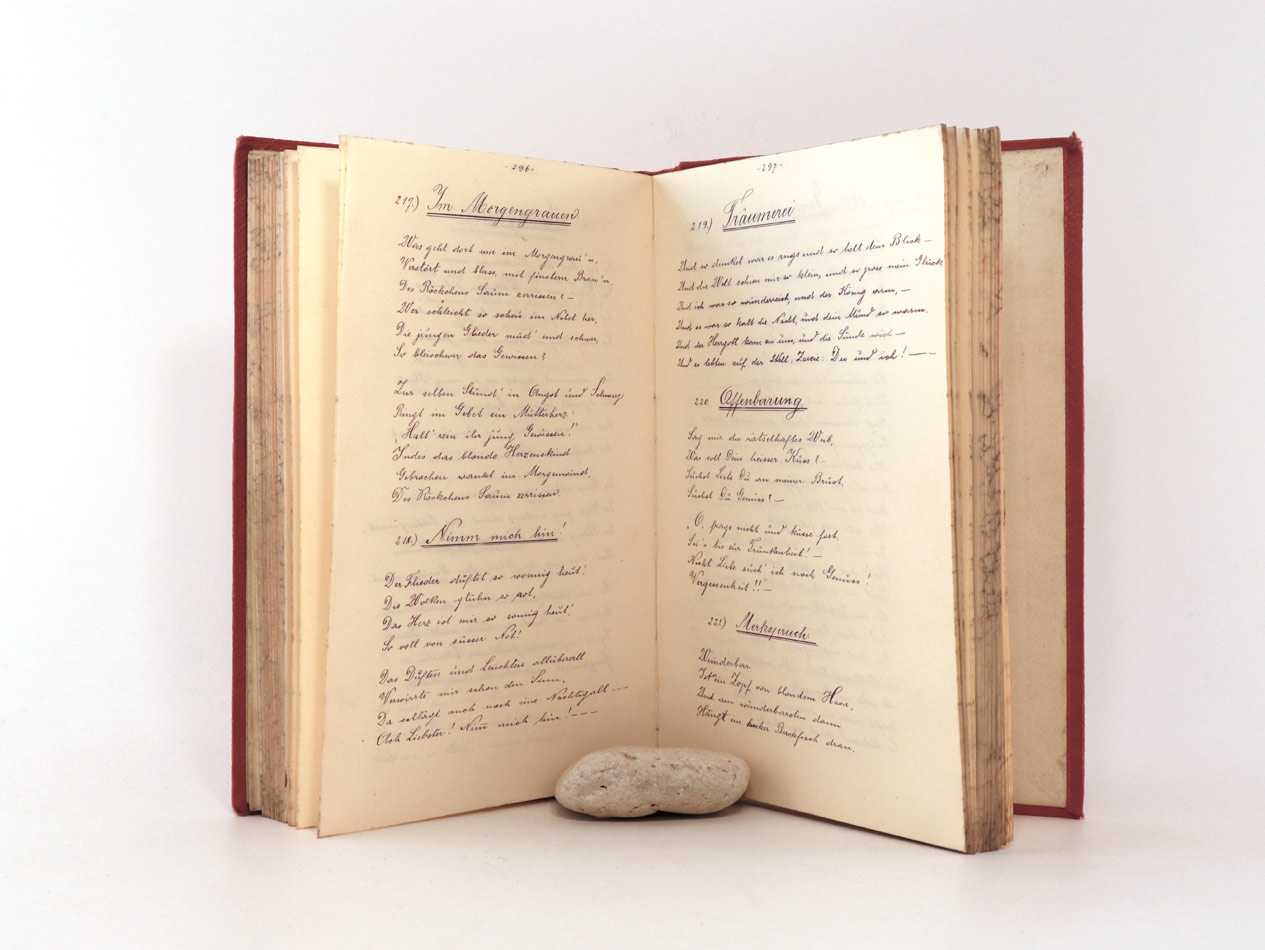 -296-
217.) Im Morgengrauen
Was geht dort um im Morgengrau'n,
Verstört und blass, mit finstern Brau'n,
Des Röckchens Saum zerrissen? –
Wer schleicht so scheu im Nebel her,
Die jungen Glieder müd' und schwer,
So bleischwer das Gewissen?
Zur selben Stund' in Angst und Schmerz
Ringt im Gebet ein Mutterherz:
"Halt' rein ihr jung Gewissen!"
Indes das blonde Herzenskind
Gebrochen wankt im Morgenwind,
Des Röckchens Saum zerrissen.
218.) Nimm mich hin!
Der Flieder duftet so wonnig heut',
Die Wolken glühn so rot,
Das Herz ist mir so sonnig heut'
So voll von süsser Not!
Das Duften und Leuchten allüberall
Verwirrte mir schon den Sinn,
Da schlägt auch noch eine Nachtigall —
Ach Liebster! Nim̄ mich hin! – – –
-297-
219.) Träumerei
Und so dunkel war es rings und so hell dein Blick –
Und die Welt schien mir so klein, und so gross mein Glück
Und ich war so wunderreich, und der König arm, –
Und es war so kalt die Nacht, und dein Mund so warm.
Und der Herrgott kam zu uns, und die Sünde wich –
Und es lebten auf der Welt, Zweie: Du und ich! — –
220. Offenbarung.
Sag mir du rätselhaftes Weib,
Was soll Dein heisser Kuss? –
Suchst Liebe Du an meiner Brust,
Suchst Du Genuss? –
"O, frage nicht und küsse fort,
Sei's bis zur Trunkenheit! –
Nicht Liebe such' ich noch Genuss!
Vergessenheit!!" –
221.) Merkspruch.
Wunderbar
Ist ein Zopf von blondem Haar,
Und am wunderbarsten dann
Hängt ein Backfisch dran.